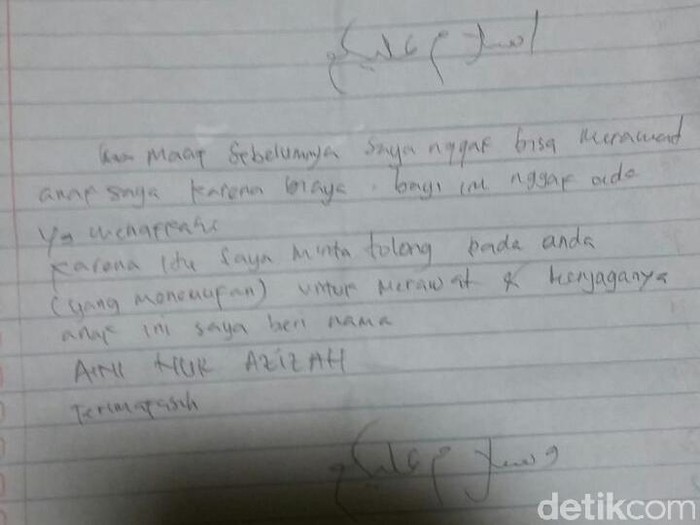 السلام عليكم
Maaf sebelumnya saya nggak bisa merawat
anak saya karena biaya. bayi ini nggak ada
yg
karena itu saya minta tolong pada anda
(yang menemukan) untuk merawat & menjaganya
anak ini saya beri nama
AINI NUR AZIZAH
Terimakasih
وعليكم السلام
detikcom